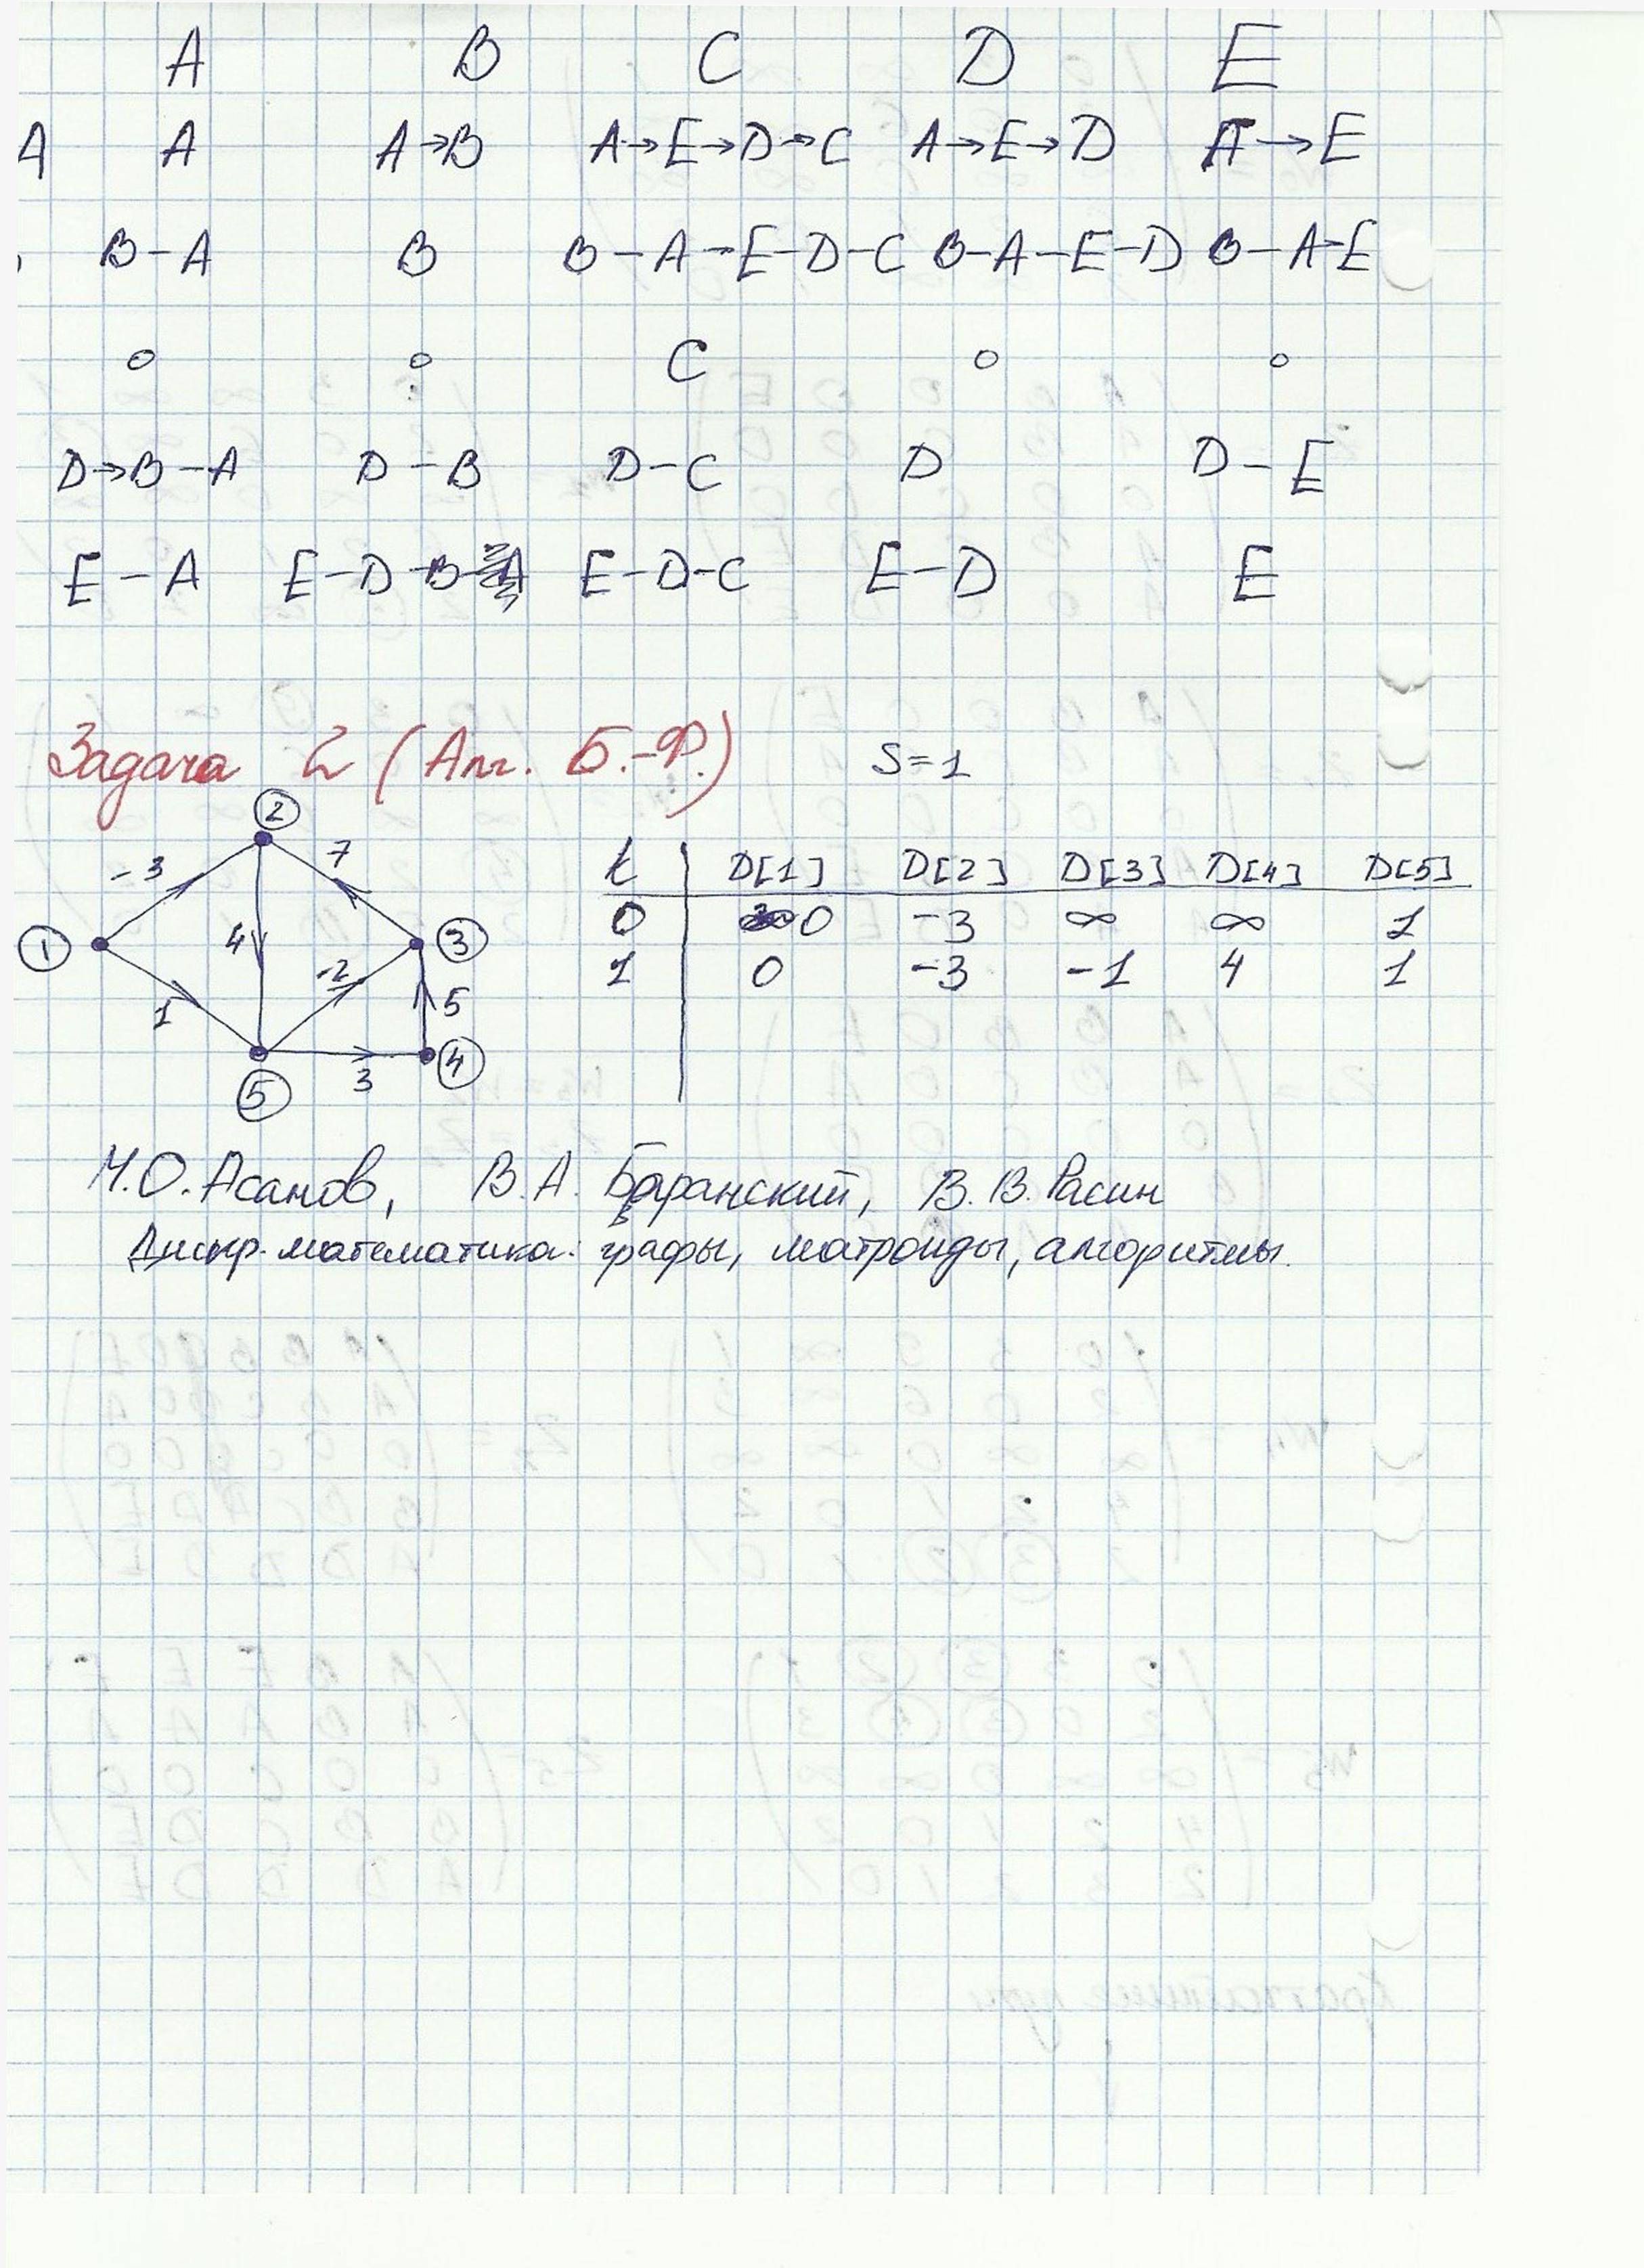 A B C D E
A A A→B A→E→D→C A→E→D A→E
B-A B B-A-E-D-C B-A-E-D B-A-E
0 0 C 0 0
D→B-A D-B D-C D D-E
E-A E-D-B E-D-C E-D E
Задача 2 (Алг. Б.-Ф.) S=1
2
-3 7
1 4 3
-2
1 5
3 4
5
t D[1] D[2] D[3] D[4] D[5]
0 0 -3 ∞ ∞ 1
1 0 -3 -1 4 1
М.О. Асанов, В.А. Баранский, В.В. Расин
Дискр. математика: графы, матроиды, алгоритмы.